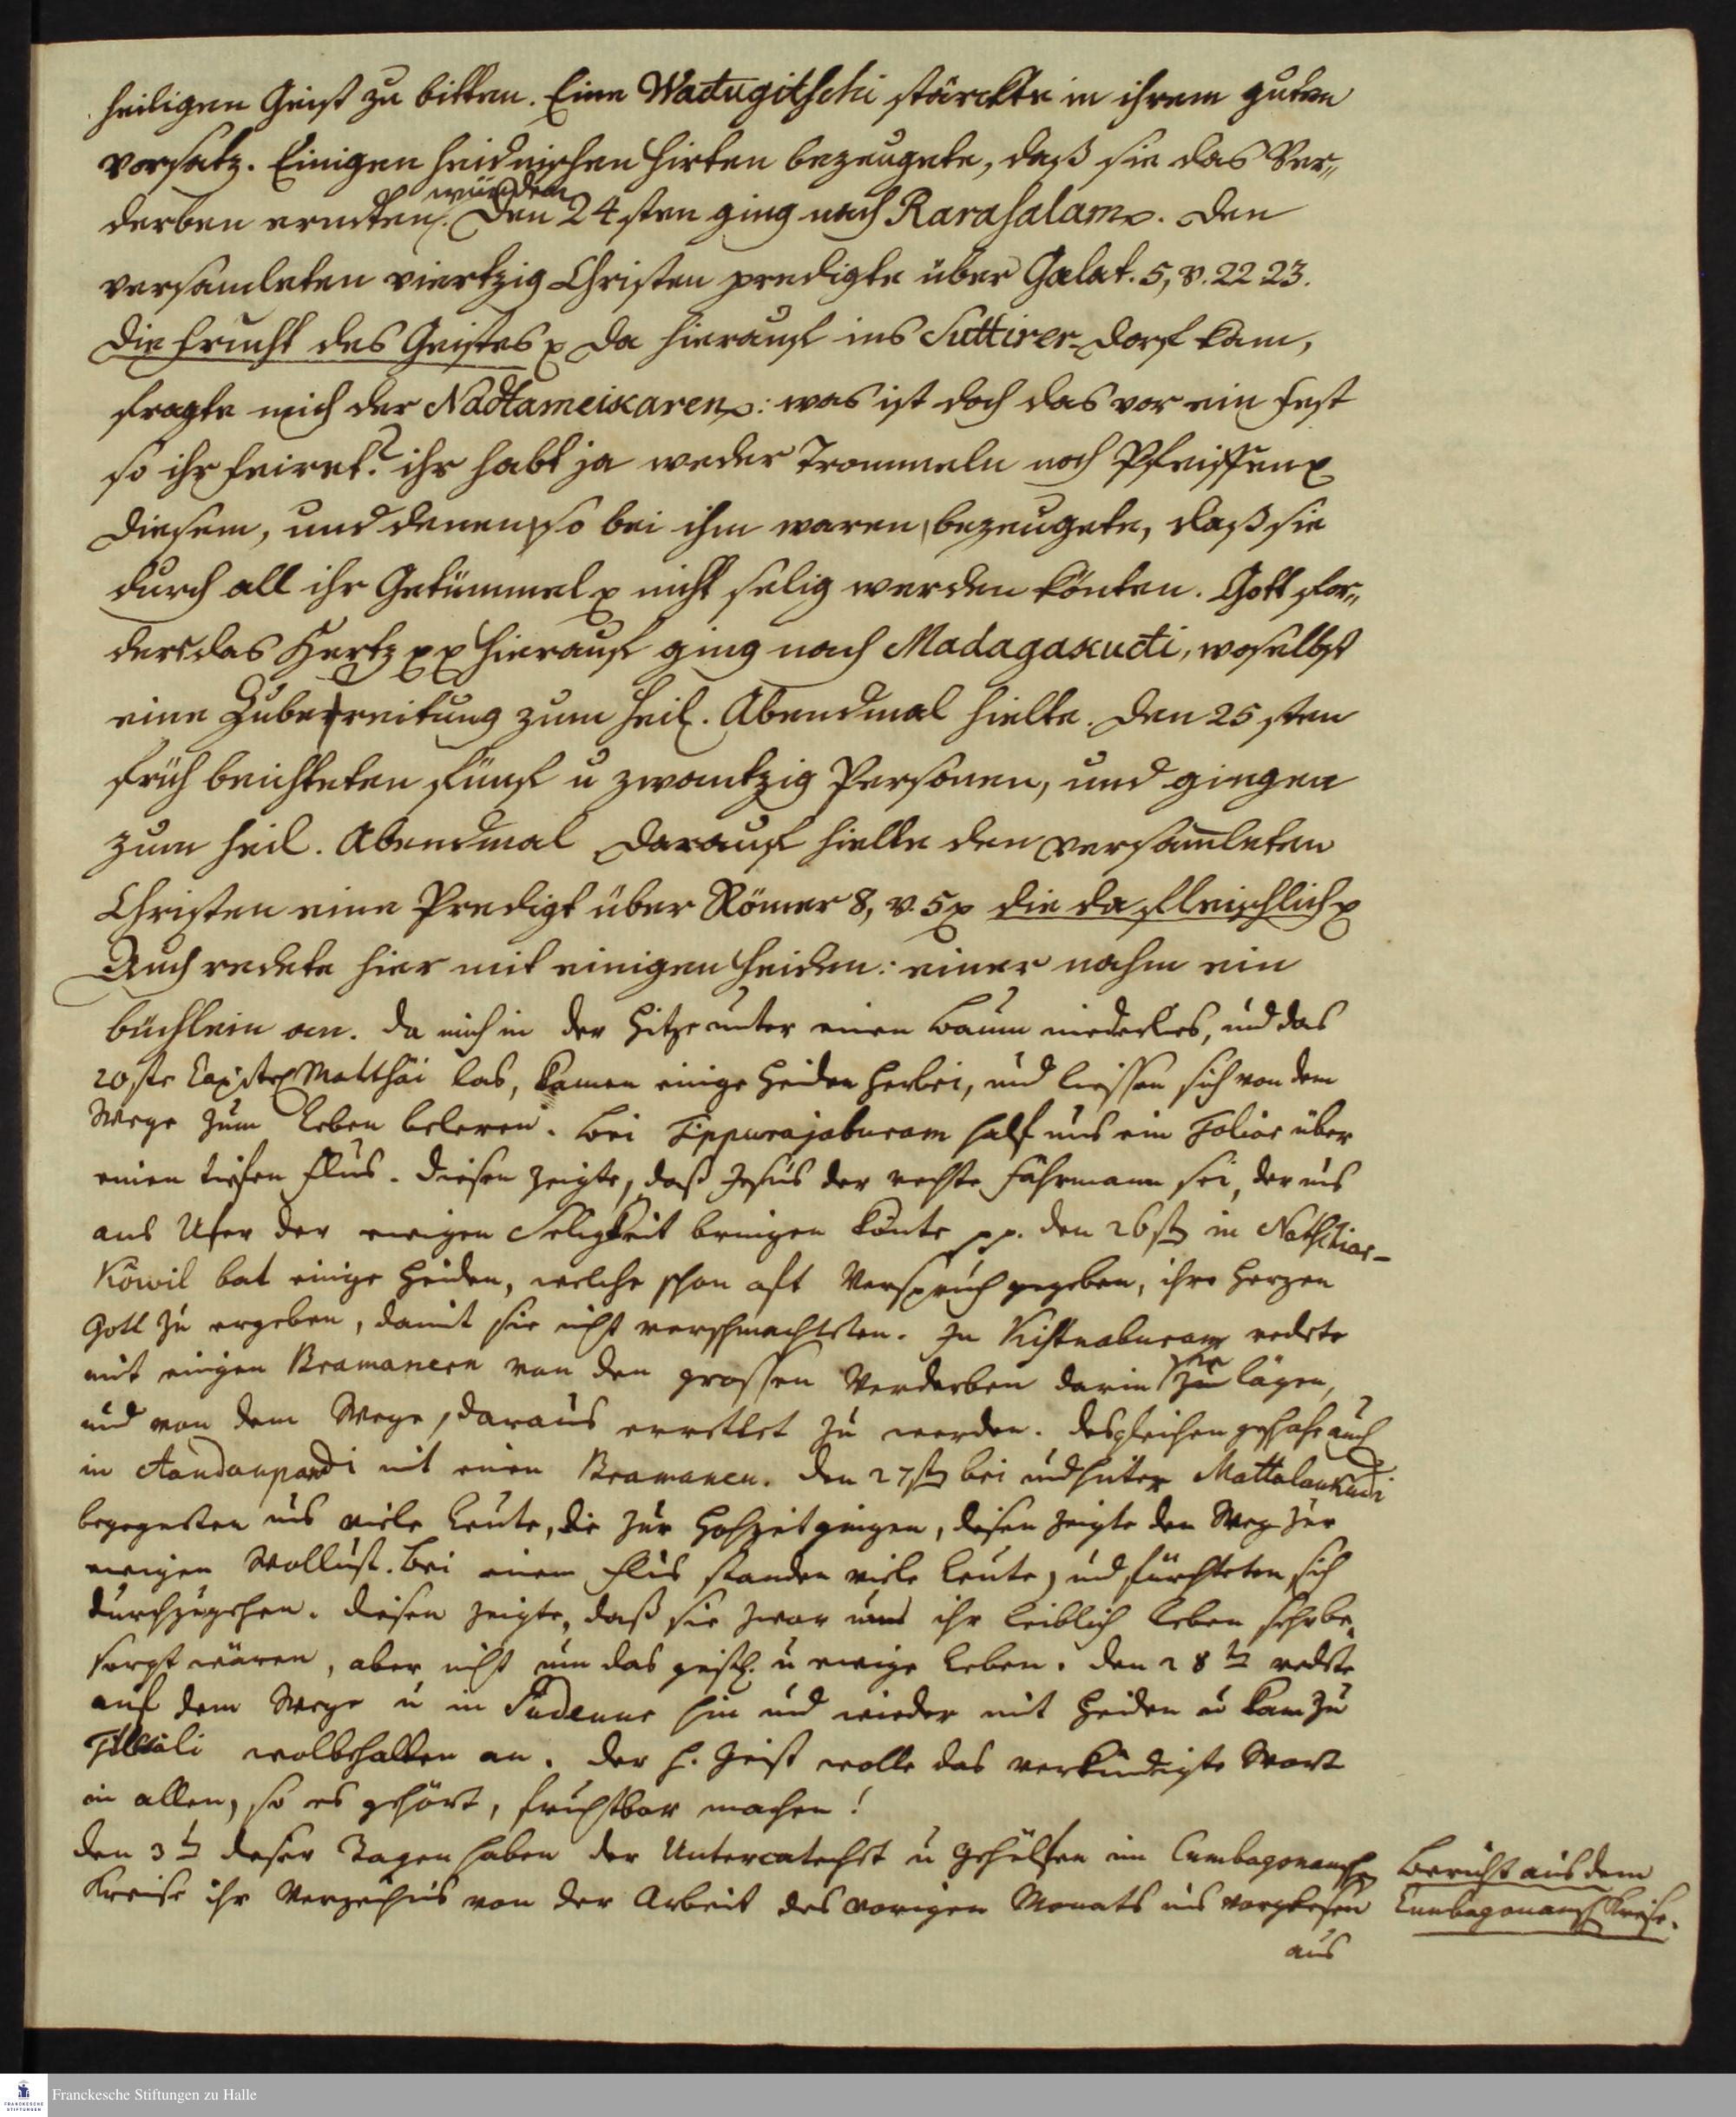 heiligen Geist zu bitten. Eine Wadugitschi stärckte in ihrem guten
Vorsatz. Einigen heidnischen Hirten bezeugete, daß sie das Ver„
würden
derben erndten. Den 24sten ging nach Rarahalam. Den
versamleten viertzig Christen predigte über Galat. 5, v. 22 23.
die Frucht des Geistes p Da hierauf ins Suttirer-dorf kam,
fragte mich der Nâdtameikaren: was ist doch das vor ein Fest
so ihr feiret? ihr habt ja weder Trommeln noch Pfeiffen p
Diesem, und denen, so bei ihm waren, bezeugete, daß sie
durch all ihr Getümmel p nicht selig werden könten. Gott for„
dere das Hertz pp Hierauf ging nach Madagakudi, woselbst
eine Zubereitung zum Heil. Abendmal hielte. Den 25sten
früh beichteten fünf u zwantzig Personen, und gingen
zum heil. Abendmal Darauf hielte den versamleten
Christen eine Predigt über Römer 8, v. 5 p die da fleischlich p
Auch redete hier mit einigen Heiden: einer nahm ein
büchlein an. Da mich in der Hitze unter einen Baum niederlies, und das
20ste Capitel Matthäi las, kamen einige Heiden herbei, und liessen sich von dem
Wege zum Leben beleren. Bei Tippurajaburam half uns ein Toliar über
einen tiefen Flus. Diesen zeigte, daß Jesus der rechte Fährmann sei, der uns
ans Ufer der ewigen Seligkeit bringen könte pp. den 26st in Natschiar-
Kôwil bat einige Heiden, welche schon oft Verspruch gegeben, ihre Herzen
Gott zu ergeben, damit sie nicht verschmachteten. In Kistnaburam redete
mit einigen Bramanern von den grossen Verderben darin sie lägen,
und von dem Wege, daraus errettet zu werden. desgleichen geschahe auch
in Aandanpandi mit einen Bramanen. den 27st bei und hinter Mattalankudi
begegneten uns viele Leute, die zur Hochzeit gingen, diesen zeigte den Weg zur
ewigen Wollust. Bei einem Flus standen viele Leute, und fürchteten sich
durchzugehen. diesen zeigte, daß sie zwar um ihr leiblich Leben sehr be„
sorgt wären, aber nicht um das geistl. u ewige Leben. den 28t redete
auf dem Wege u in hin und wieder mit Heiden u kam zu
Tillali wolbehalten an. der H. Geist wolle das verkündigte Wort
in allen, so es gehört, fruchtbar machen!
den 3t dieser Tagen haben der Untercatechet u Gehülfen im Cumbagonamsch
Kreise ihr Verzeichnis von der Arbeit des vorigen Monats uns vorgelesen
Bericht aus dem
Cumbagonamsch Kreise.
aus
Franckesche Stiftungen zu Halle